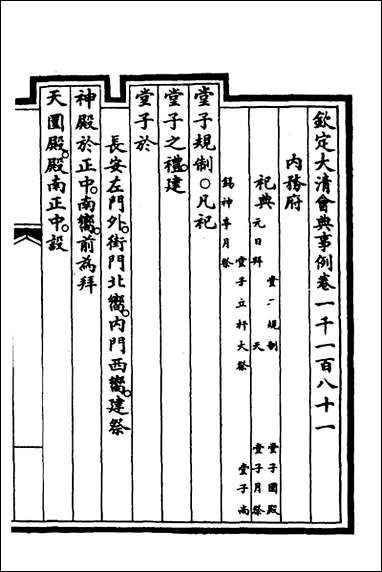 欽定大清會典事例卷一千一百八十一
內務府
祀典
堂子規制 堂子圜殿
元日拜天 堂子月祭
堂子立杆大祭 堂子尚
錫神亭月祭
堂子規制○凡祀
堂子之禮。建
堂子於
長安左門外。街門北嚮。內門西嚮。建祭
神殿於正中。南嚮。前為拜
天圜殿。殿南正中。設